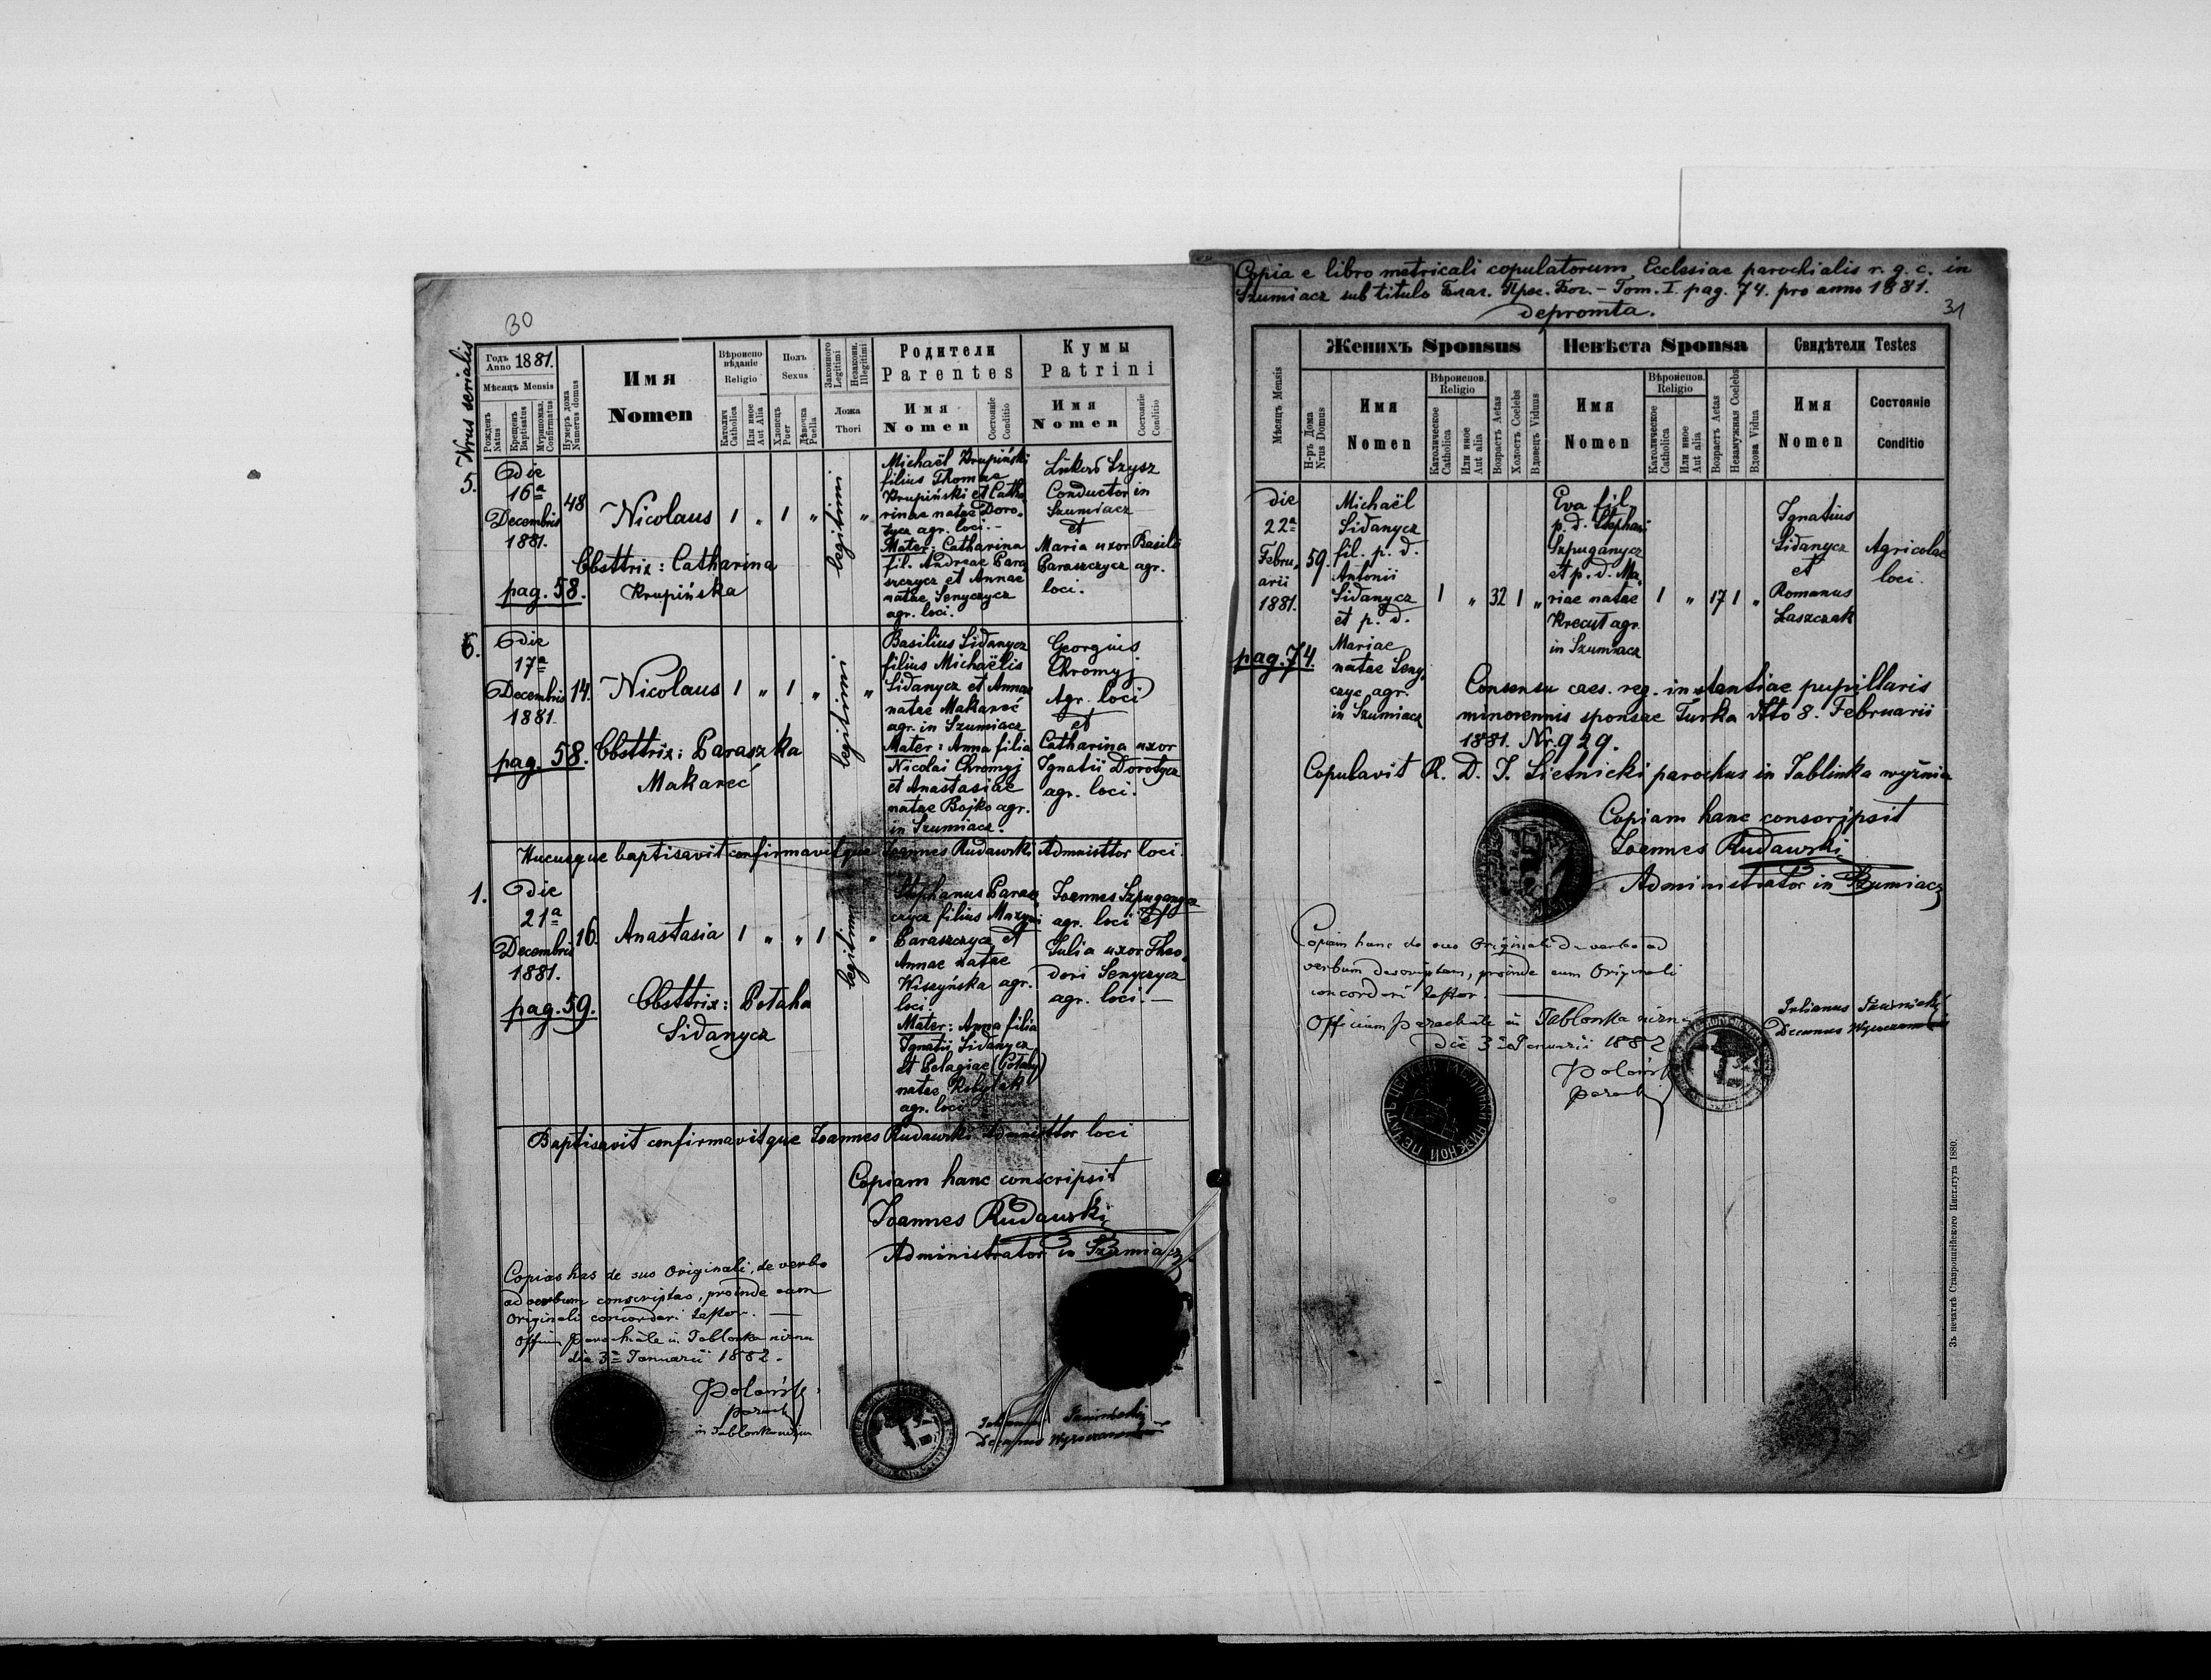 30
Nrus serialis
Годъ Anno 1881.
Мѣсяцъ Mensis
Рожденъ Natus
Крещенъ Baptisatus
Мѵропомаз. Confirmatus
Нумеръ дома Numerus domus
Имя
Nomen
Вѣроисповѣданіе
Religio
Католич Catholica
Или иное Aut Alia
Полъ
Sexus
Хлопецъ Puer
Дѣвочка Puella
Законного Legitimi
Незаконн. Illegitimi
Ложа
Thori
Родители
Parentes
Имя
Nomen
Состояніе Conditio
Кумы
Patrini
Имя
Nomen
Состояніе Conditio
5.
Die
16a
Decembris
1881.
pag. 58.
48
Nicolaus 1 „ 1 „ legitimi „
Obsttrix: Catharina
Krupińska
Michaël Krupiński
filius Thomae
Krupiński et Catha
rinae natae Doro-
tycz agr. loci.-
Mater: Catharina
fil. Andreae Para
szczycz et Annae
natae Senyczycz
agr. loci.
Lukas Szysz
Conductor in
Szumiacz
et
Maria uxor Basilii
Paraszczycz agr.
loci.
6.
Die
17a
Decembris
1881.
pag. 58.
14.
Nicolaus 1 „ 1 „ legitimi „
Obsttrix: Paraszka
Makareć
Basilius Sidanycz
filius Michaëlis
Sidanycz et Annae
natae Makareć
agr. in Szumiacz
Mater: Anna filia
Nicolai Chromyj
et Anastasiae
natae Bojko agr.
in Szumiacz.
Georgius
Chromyj
Agr. loci
et
Catharina uxor
Ignatii Dorotycz
agr. loci.
Hucusque baptisavit confirmavitque Joannes Rudawski Admnisttor loci.
1.
Die
21a
Decembris
1881.
pag. 59.
16.
Anastasia 1 „ „ 1 legitimi „
Obsttrix: Petaha
Sidanycz
Stephanus Parasz
czycz filius Maxymi
Paraszczycz et
Annae natae
Wiszyńska agr.
loci.
Mater: Anna filia
Ignatii Sidanycz
et Pelagiae (Petahy)
natae Kobylak
agr. loci
Joannes Szpuganycz
agr. loci et
Julia uxor Theo-
dori Senyczycz
agr. loci.—
Baptisavit confirmavitque Joannes Rudawski Admnisttor loci
Copiam hanc conscripsit
Joannes Rudawski
Administrator in Szumiacz
Copias has de suo Originali, de verbo
ad verbum conscriptas, proinde cum
Originali concordari testor. —
Officium parochiale in Jablonka nizna
die 3a Januarii 1882.
in Jablonka
Decanus
31
Copia e libro metricali copulatorum Ecclesiae parochialis r. g. c. in
Szumiacz sub titulo Благ. Прес. Бог. – Tom. I. pag. 74. pro anno 1881.
depromta.
Мѣсяцъ Mensis
Н-ръ Дома Nrus Domus
Женихъ Sponsus
Имя
Nomen
Вѣроиспов. Religio
Католическое Catholica
Или иное Aut alia
Возрастъ Aetas
Холостъ Coelebs
Вдовецъ Viduus
Невѣста Sponsa
Имя
Nomen
Вѣроиспов. Religio
Католическое Catholica
Или иное Aut alia
Возрастъ Aetas
Незамужная Coelebs
Вдова Vidua
Свидѣтели Testes
Имя
Nomen
Состояніе
Conditio
die
22a
Febru-
arii
1881.
pag. 74.
59.
Michaël
Sidanycz
fil. p. d.
Antonii
Sidanycz
et p. d.
Mariae
natae Seny-
czyc agr.
in Szumiacz
1 „ 32 1 „
Eva fil.
p. d. Stephani
Szpuganycz
et p. d. Ma-
riae natae
Krecut agr.
in Szumiacz
1 „ 17 1 „
Ignatius
Sidanycz
et
Romanus
Laszczak
Agricolae
loci.
Consensu caes. reg. instantiae pupillaris
minorennis sponsae Turka dtto 8. Februarii
1881. Nr. 929.
Copulavit R. D. J. Lietnicki parochus in Jablinka wyźnia
Copiam hanc conscripsit
Joannes Rudawski
Administrator in Szumiacz
Copiam hanc de suo Originali de verbo ad
verbum descriptam, proinde cum Originali
concordari testor.
Officium parochiale in Jablonka nizna
die 3a Januarii 1882
ПЕЧАТЬ ЦЕРКВИ ЯБЛОНКИ НИЖНОЙ
Decanus
Зъ печатнѣ Ставропигійского Института 1880.